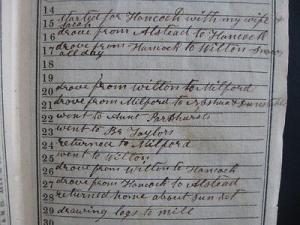 14
15 started for Hancock with my wife &
16 drove from Alstead to Hancock
17 drove from Hancock to Wilton
all day
18
19
20 drove from Wilton to Milford
21 drove from Milford to
22 went to Aunt Parkhursts
23 went to Br Taylors
24 returned to Milford
25 went to Wilton
26 drove from Wilton to Hancock
27 drove from Hancock to Alstead
28 returned home about sun set
29 drawing logs to mill
30